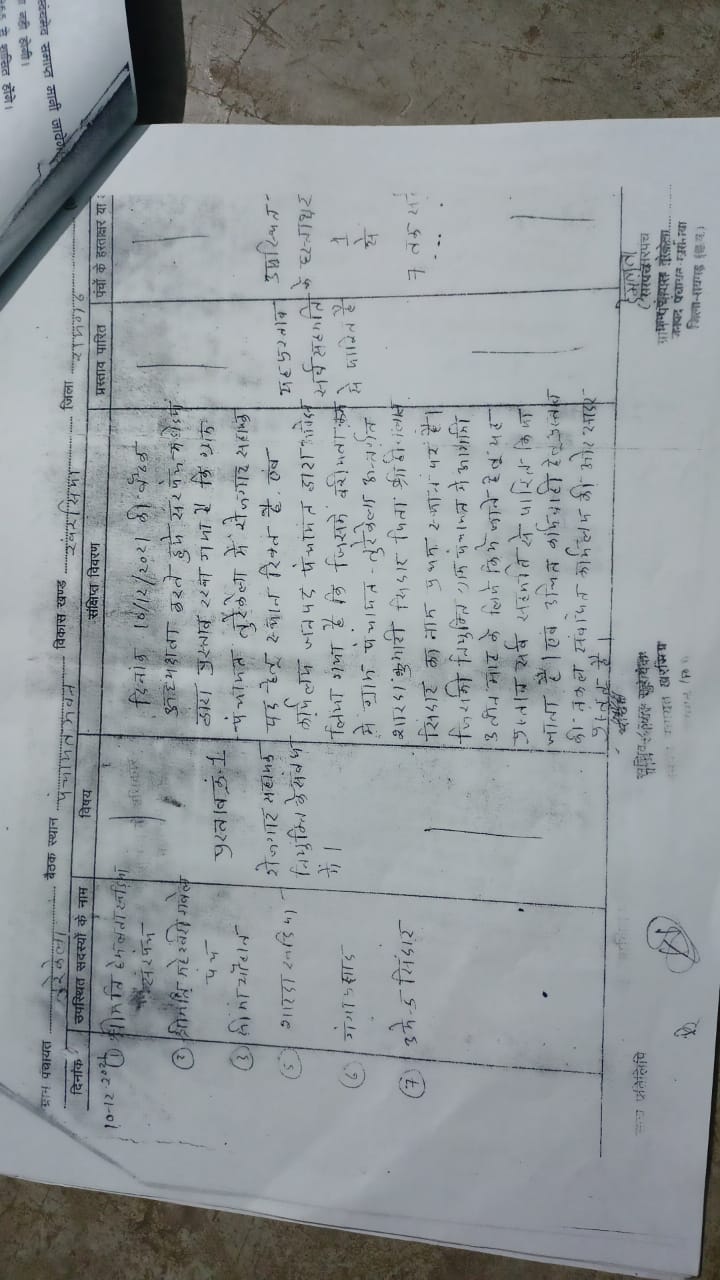 ग्राम पंचायत तुरेकेला बैठक स्थान पंचायत भवन विकास खण्ड खरसिया जिला रायगढ़
दिनांक उपस्थित सदस्यों के नाम विषय संक्षिप्त विवरण प्रस्ताव पारित पंचों के हस्ताक्षर या
10-12-2021
① श्रीमति हेमलता
सरपंच
② श्रीमति महेश्वरी गबेल
पंच
③
⑤ शारदा
⑥ गंगाप्रसाद
⑦ सिदार
प्रस्ताव क्रं. 1
रोजगार सहायक
नियुक्ति के संबंध
में।
दिनांक 10/12/2021 की बैठक
अध्यक्षता करते हुये सरपंच महोदया
द्वारा प्रस्ताव रखा गया है कि ग्राम
पंचायत तुरेकेला में रोजगार सहायक
पद हेतु स्थान रिक्त है. एवं
कार्यालय जनपद पंचायत द्वारा आवेदन
लिया गया है कि जिसमें वरीयता क्रम
में ग्राम पंचायत तुरेकेला अन्तर्गत
शारदा कुमारी सिदार पिता श्री
सिदार का नाम प्रथम स्थान पर है।
जिसकी नियुक्ति ग्राम पंचायत में आगामी
तीन माह के लिये किये जाने हेतु यह
प्रस्ताव सर्व सहमति से पारित किया
जाता है। एवं उचित कार्यवाही हेतु प्रस्ताव
की नकल संबंधित कार्यालय की ओर सादर
प्रस्तुत है।
यह प्रस्ताव
सर्व सहमति
से पारित है
उपस्थित
के हस्ताक्षर
1
से
7 तक
सत्य प्रतिलिपि
सरपंच
ग्राम पंचायत तुरेकेला
जनपद पंचायत खरसिया
जिला-रायगढ़ (छ.ग.)